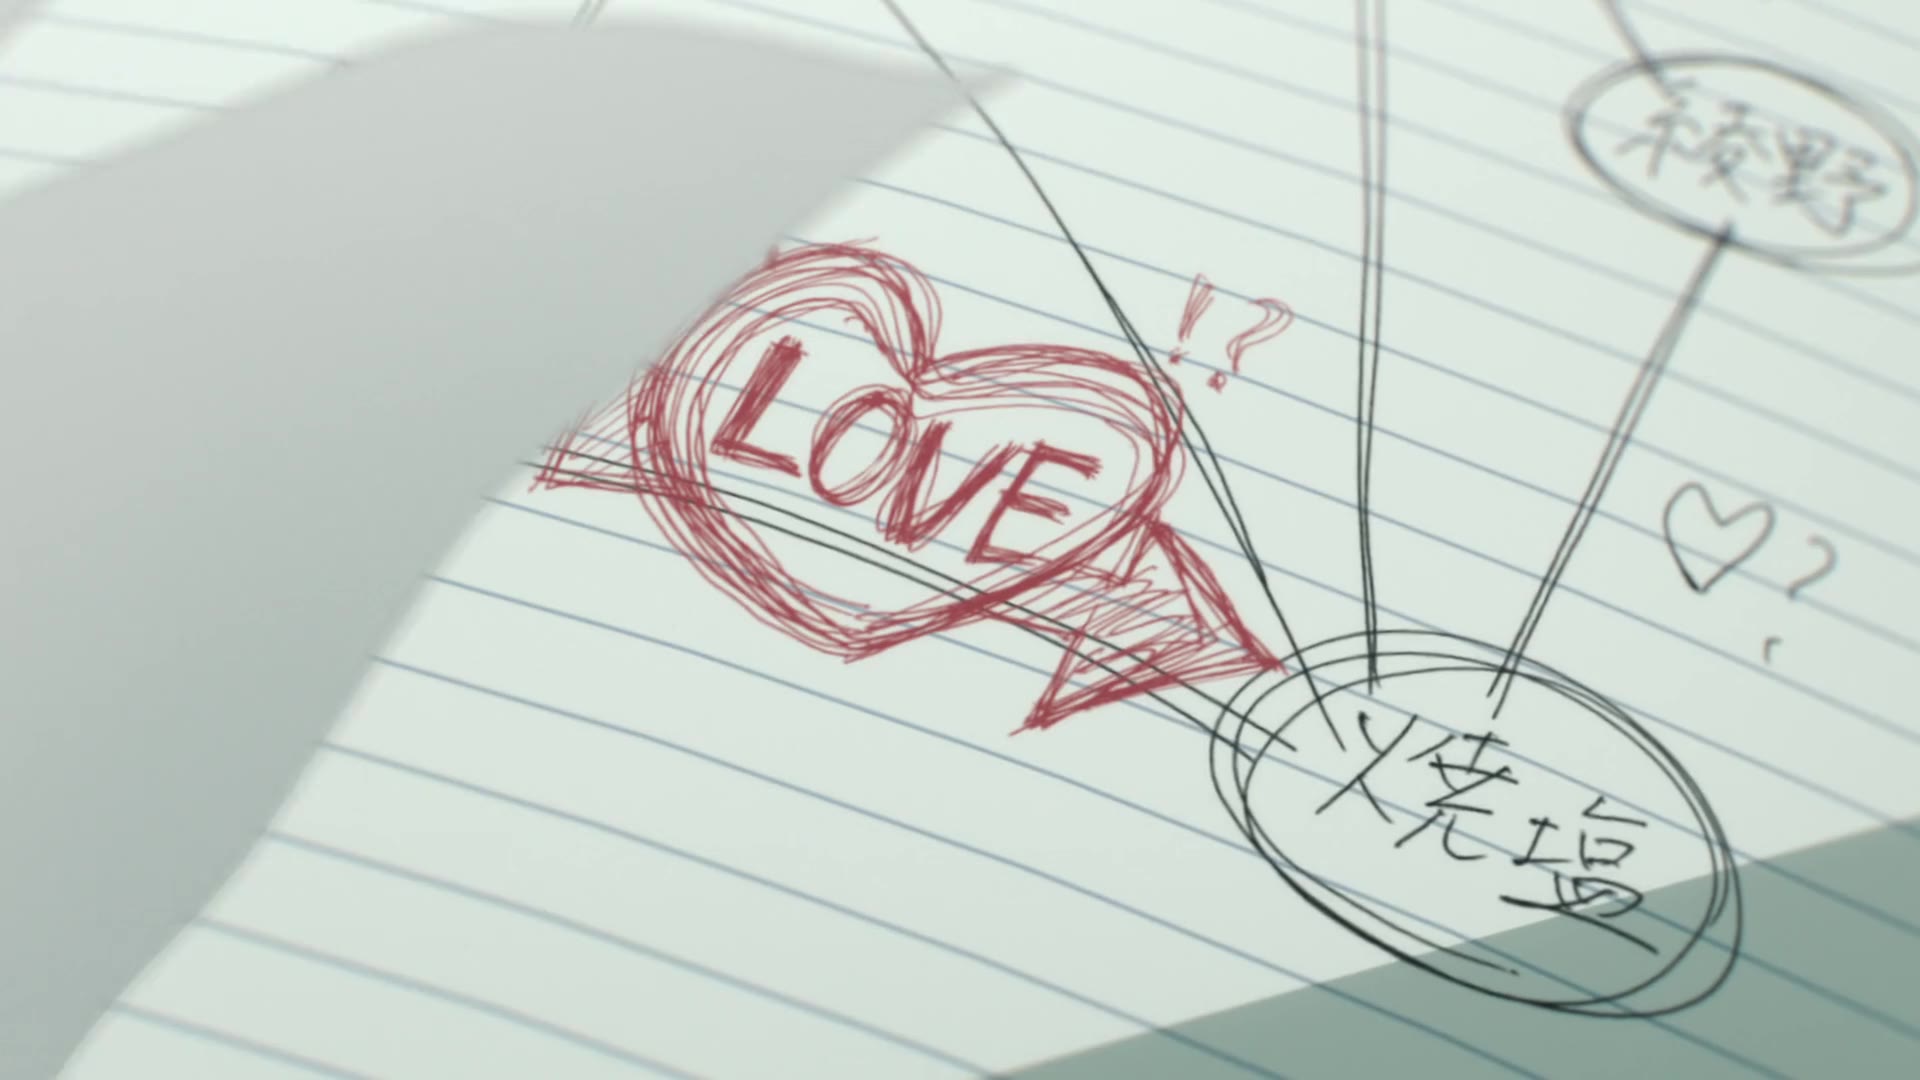 綾野
!?
LOVE
?
焼塩